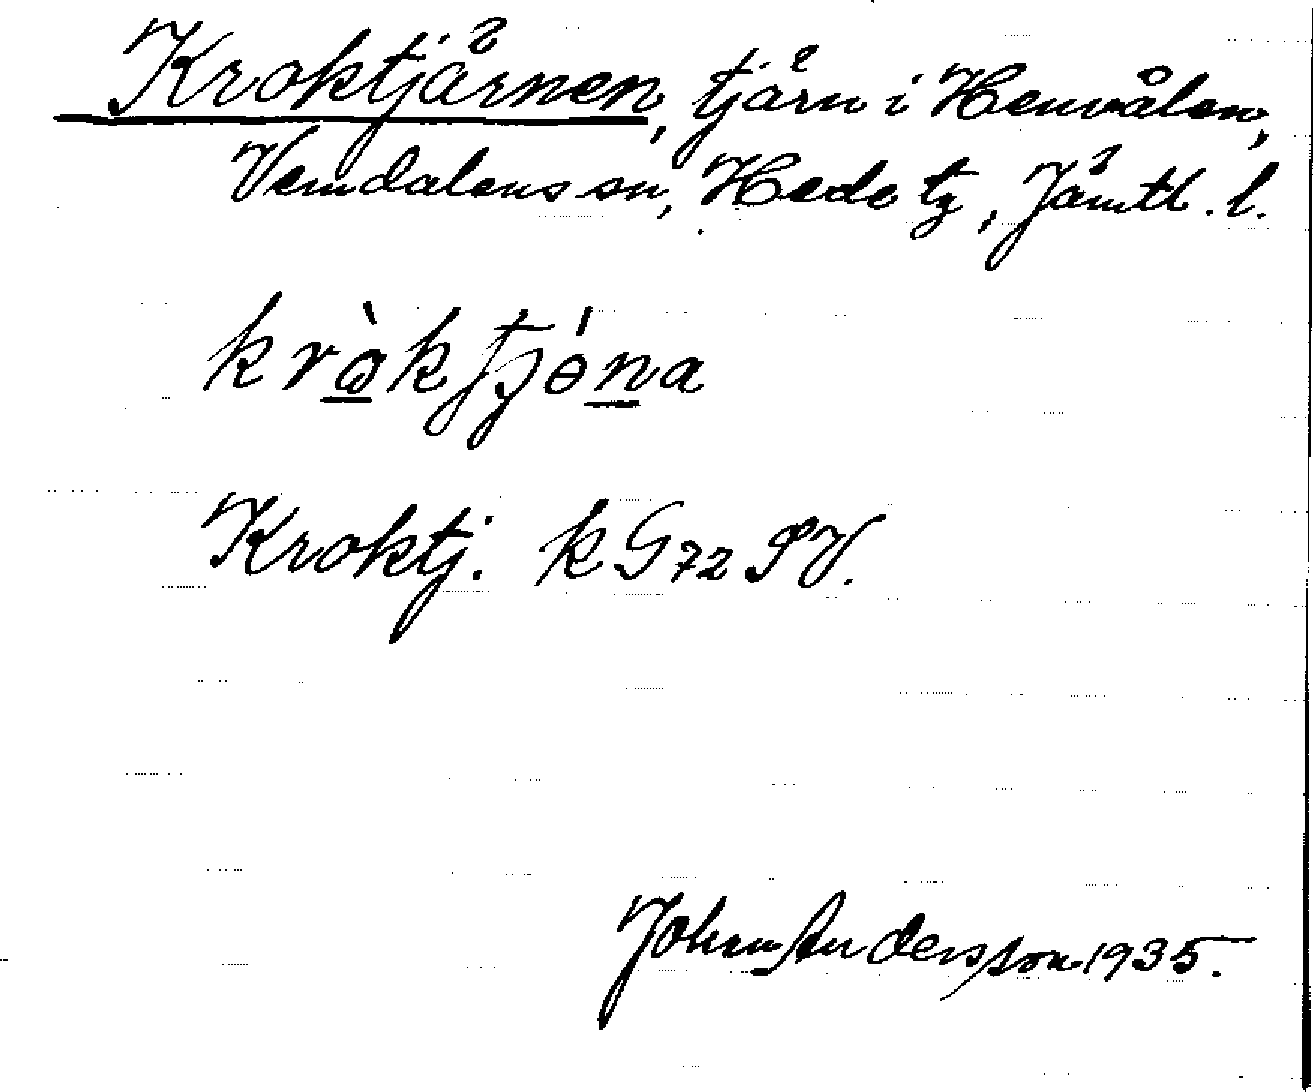 Kroktjärnen, tjärn i Henvålen,
Vemdalens sn, Hede tg, Jämtl. l.
kròktjǿna
Kroktj. k G72SV.
Johan Andersson 1935.